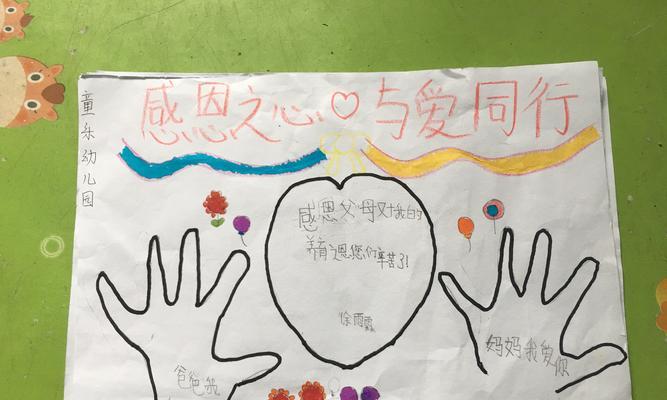 童乐幼儿园
感恩之心♡与爱同行
感恩父母对我的
养育之恩您们辛苦了!
徐雨露
爸爸我
妈妈我爱你